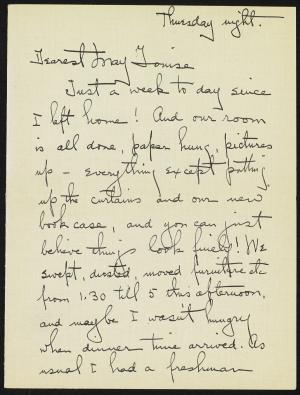 Thursday night.
Dearest May Louise
Just a week to day since
I left home! And our room
is all done, paper hung, pictures
up – everything except putting
up the curtains and our new
book case, and you can just
believe things look finely! We
swept, dusted, moved furniture etc
from 1.30 till 5 this afternoon,
and maybe I wasn't hungry
when dinner time arrived. As
usual I had a freshman